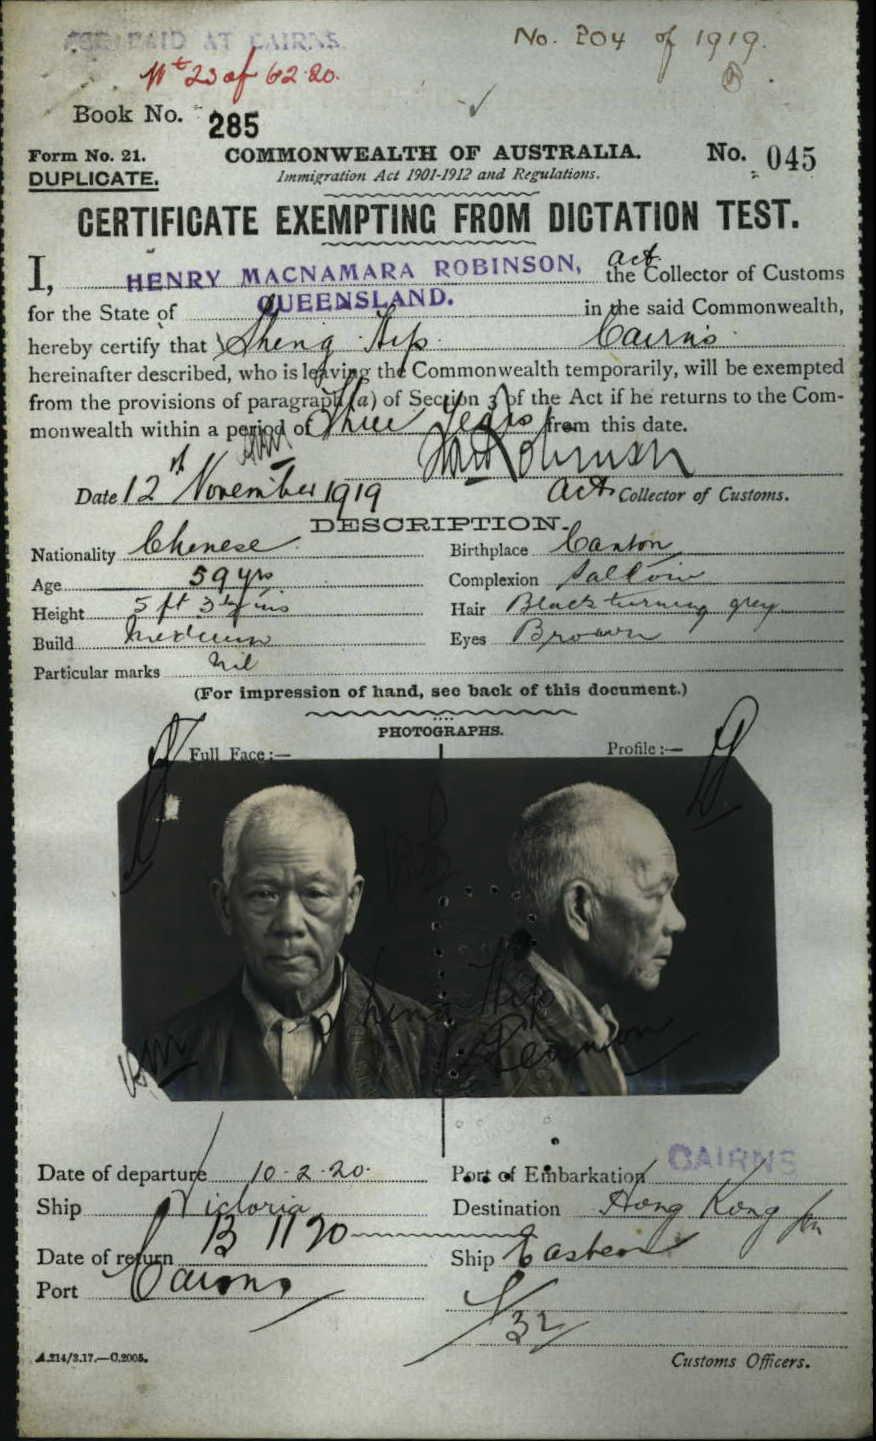 FEE PAID AT CAIRNS.
No. 204 of 1919.
Book No. 285
Form No. 21.
COMMONWEALTH OF AUSTRALIA.
No. 045
DUPLICATE.
Immigration Act 1901-1912 and Regulations.
CERTIFICATE EXEMPTING FROM DICTATION TEST.
I, HENRY MACNAMARA ROBINSON, act. the Collector of Customs
for the State of QUEENSLAND. in the said Commonwealth,
hereby certify that Sheng Hip Cairns
hereinafter described, who is leaving the Commonwealth temporarily, will be exempted
from the provisions of paragraph (a) of Section 3 of the Act if he returns to the Com-
monwealth within a period of Three Years from this date.
Date 12th November 1919
Act Collector of Customs.
DESCRIPTION.
Nationality Chinese
Birthplace Canton
Age 59 yrs
Complexion Sallow
Height 5 ft 3 ins
Hair Black turning grey
Build Medium
Eyes Brown
Particular marks Nil
(For impression of hand, see back of this document.)
PHOTOGRAPHS.
Full Face:—
Profile:—
Sheng Hip
Date of departure 10-2-20.
Port of Embarkation CAIRNS
Ship Victoria
Destination Hong Kong
Date of return 13 11 20
Ship Eastern
Port Cairns
32
A.214/3.17.—C.2005.
Customs Officers.